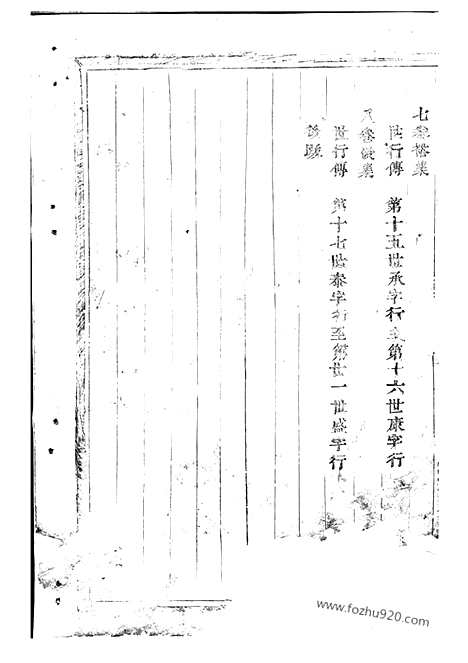 七卷裕集
世行傳 第十五世承字行至第十六世康字行
八卷後集
世行傳 第十七世泰字行至第廿一世盛字行
後跋
www.fozhu920.com